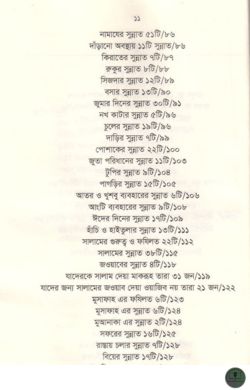 ১১
নামাযের সুন্নাত ৫১টি/৮৬
দাঁড়ানো অবস্থায় ১১টি সুন্নাত/৮৬
কিরাতের সুন্নাত ৭টি/৮৭
রুকুর সুন্নাত ৮টি/৮৮
সিজদার সুন্নাত ১২টি/৮৯
বসার সুন্নাত ১৩টি/৯০
জুমার দিনের সুন্নাত ৩০টি/৯১
নখ কাটার সুন্নাত ৫টি/৯৬
চুলের সুন্নাত ১৯টি/৯৬
দাড়ির সুন্নাত ৭টি/৯৯
পোশাকের সুন্নাত ২২টি/১০০
জুতা পরিধানের সুন্নাত ১১টি/১০৩
টুপির সুন্নাত ৯টি/১০৪
পাগড়ির সুন্নাত ১৫টি/১০৫
আতর ও খুশবু ব্যবহারের সুন্নাত ৬টি/১০৬
আংটি ব্যবহারের সুন্নাত ৯টি/১০৮
ঈদের দিনের সুন্নাত ১৭টি/১০৯
হাঁচি ও হাইতুলার সুন্নাত ১৩টি/১১১
সালামের গুরুত্ব ও ফযিলত ২২টি/১১২
সালামের সুন্নাত ৩৮টি/১১৫
জওয়াবের সুন্নাত ৪টি/১১৮
যাদেরকে সালাম দেয়া মাকরূহ তারা ৩১ জন/১১৯
যাদের জন্য সালামের জওয়াব দেওয়া ওয়াজিব নয় তারা ২১ জন/১২২
মুসাফাহ এর ফযিলত ৬টি/১২৩
মুসাফাহ এর সুন্নাত ৬টি/১২৪
মুআনাকা এর সুন্নাত ২টি/১২৪
সফরের সুন্নাত ১৬টি/১২৫
রাস্তায় চলার সুন্নাত ৭টি/১২৮
বিয়ের সুন্নাত ১৭টি/১২৮